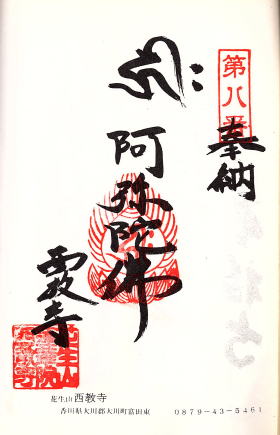 第八番
奉納
阿弥陀佛
西教寺
花生山 西教寺
香川県大川郡大川町富田東 0879-43-5461